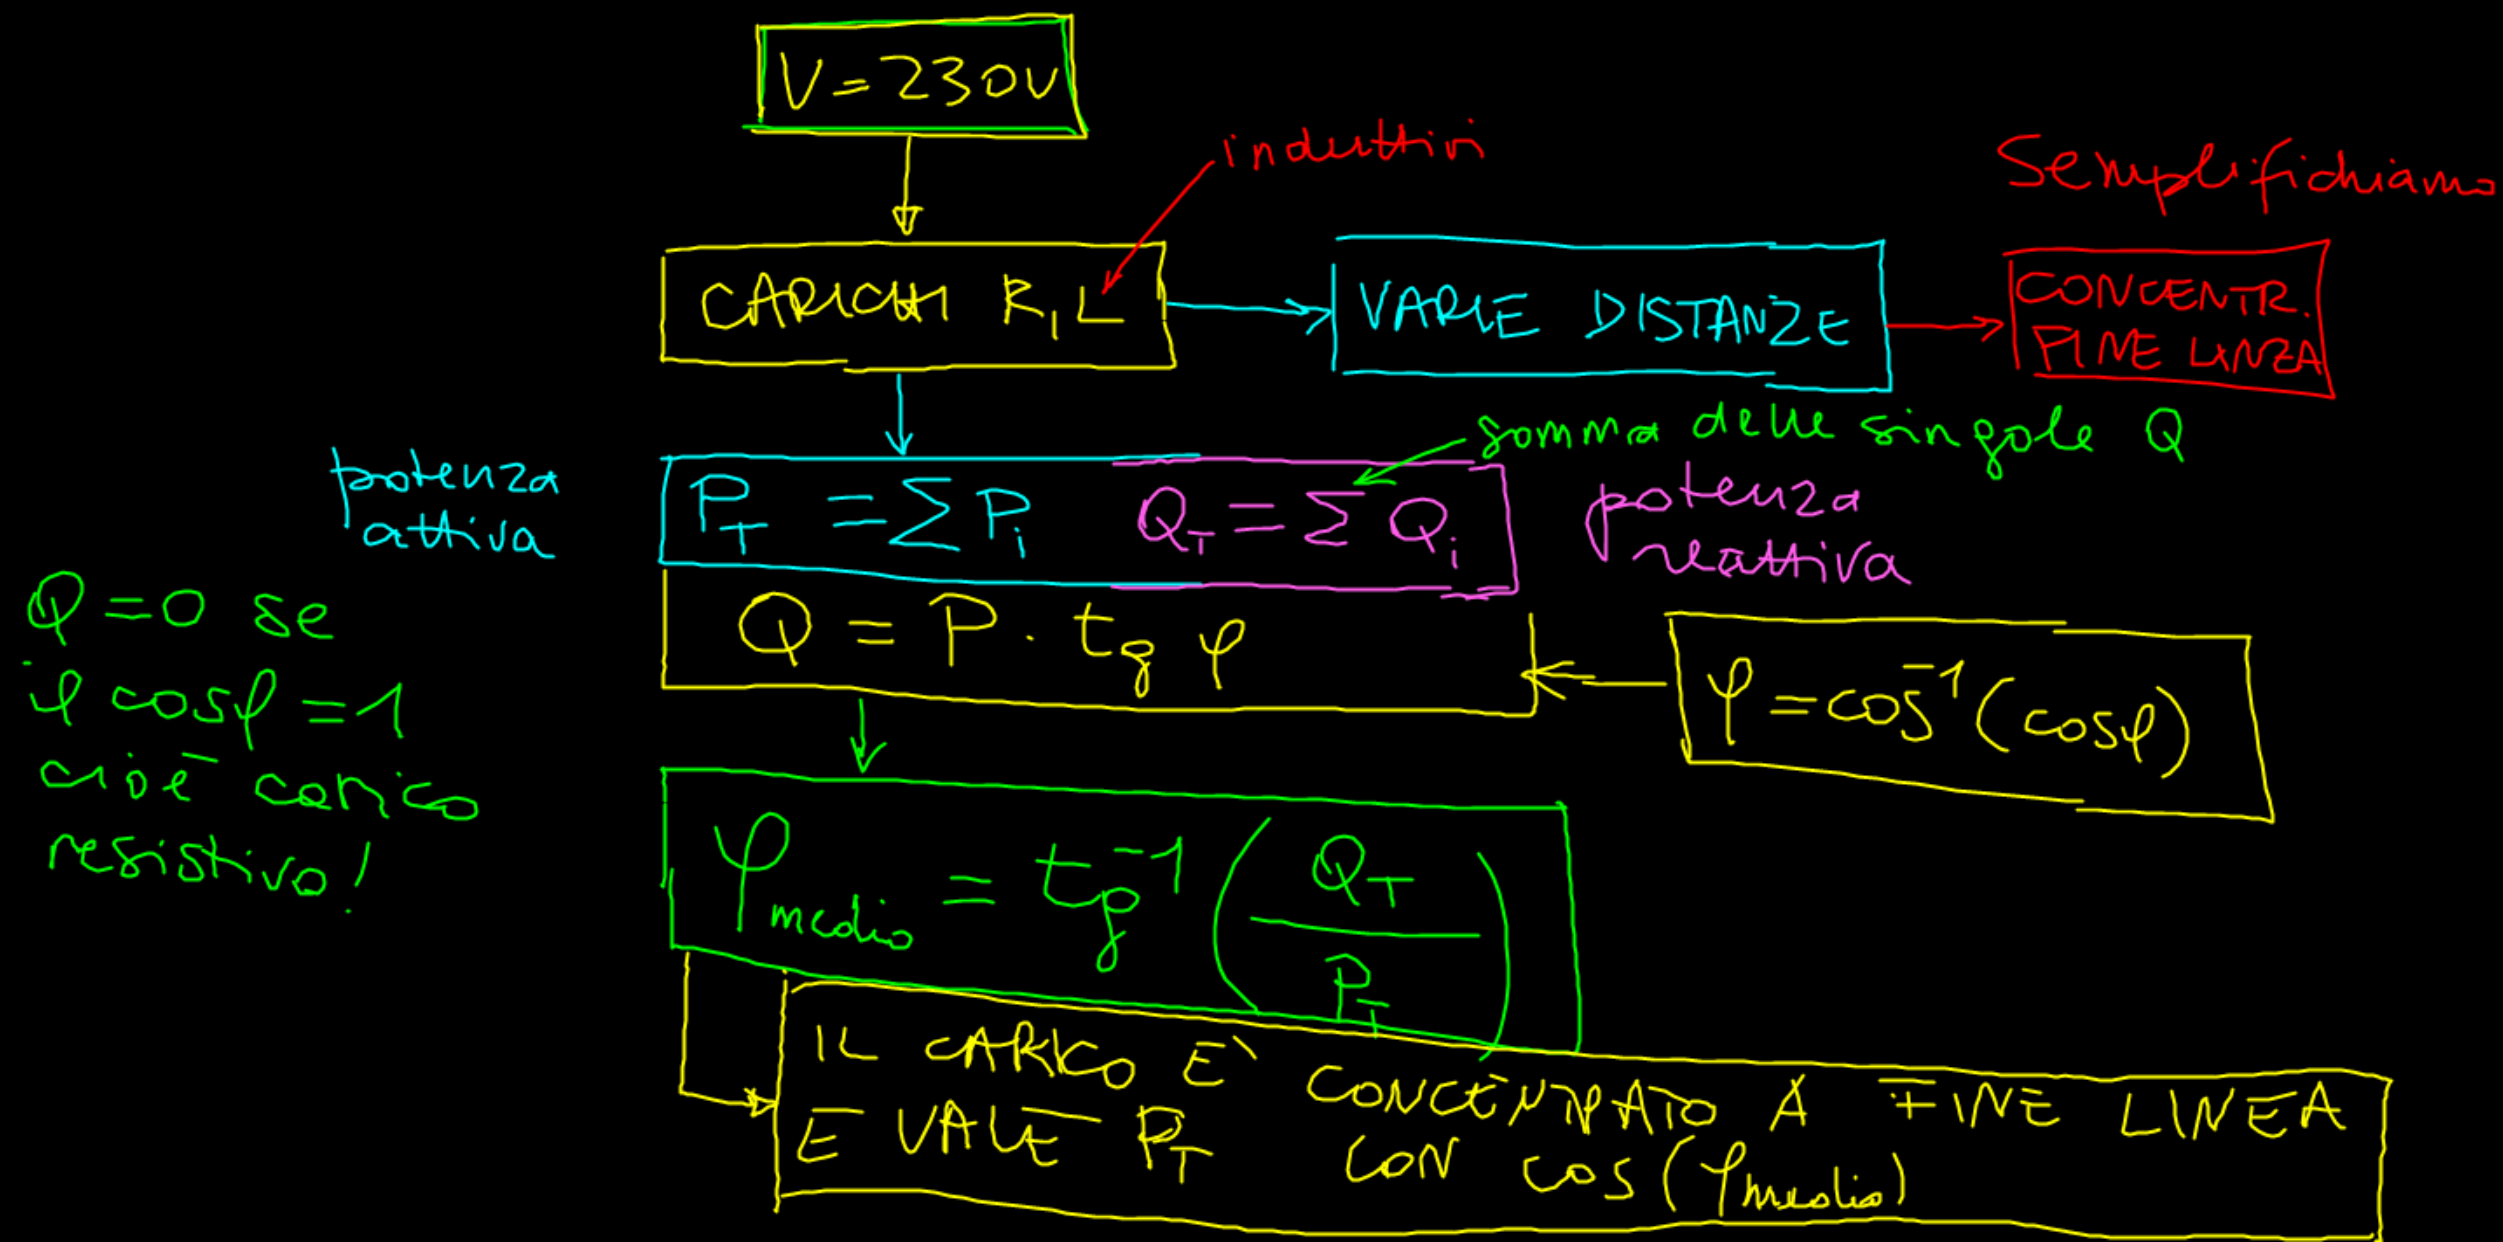 V = 230V
induttivi
Semplifichiamo
CARICHI R, L
VARIE DISTANZE
CONCENTR.
FINE LINEA
somma delle singole Q
potenza
attiva
P_T = ∑ P_i
Q_T = ∑ Q_i
potenza
reattiva
Q = 0 se
il cosφ = 1
cioè carico
resistivo!
Q = P · tg φ
φ = cos⁻¹ (cosφ)
φ_medio = tg⁻¹ (Q_T / P_T)
IL CARICO E' CONCENTRATO A FINE LINEA
E VALE P_T CON COS(φ_medio)